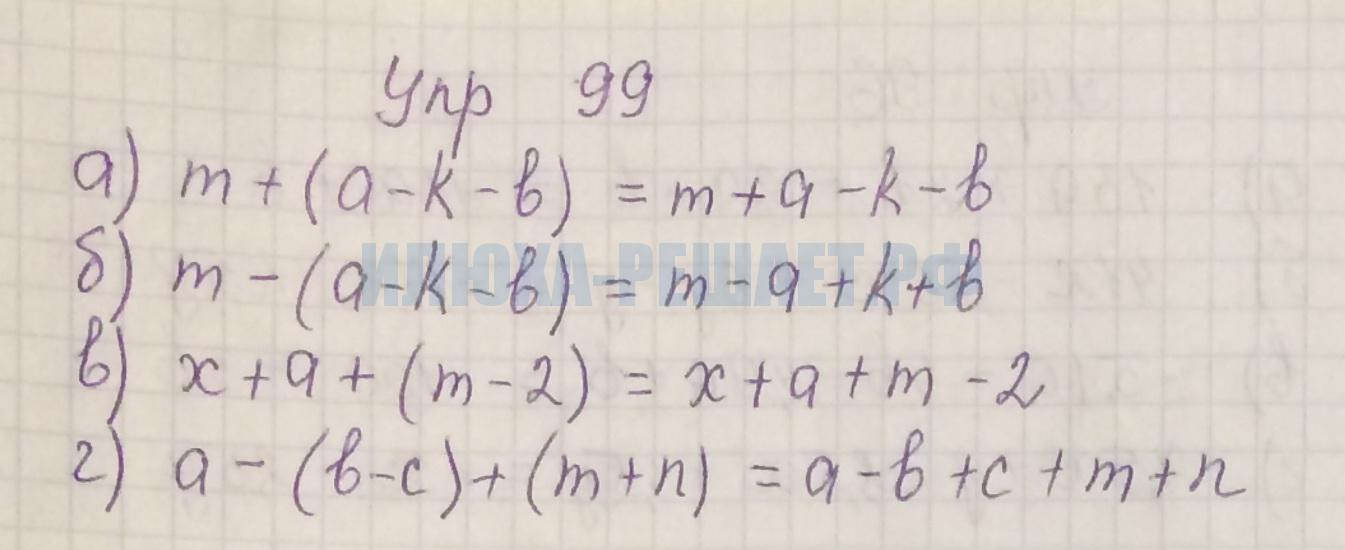 Упр 99
а) m + (a - k - b) = m + a - k - b
б) m - (a - k - b) = m - a + k + b
ИЛЮХА-РЕШАЕТ.РФ
в) x + a + (m - 2) = x + a + m - 2
г) a - (b - c) + (m + n) = a - b + c + m + n